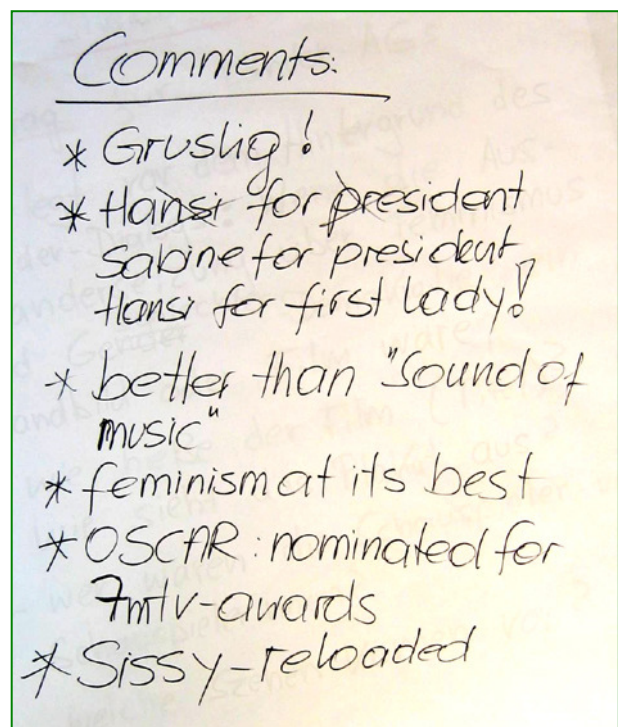 Comments:
* Gruslig!
* Hansi for president
Sabine for president
Hansi for first lady!
* better than "Sound of
music"
* feminism at its best
* OSCAR: nominated for
7mtv-awards
* Sissy-reloaded